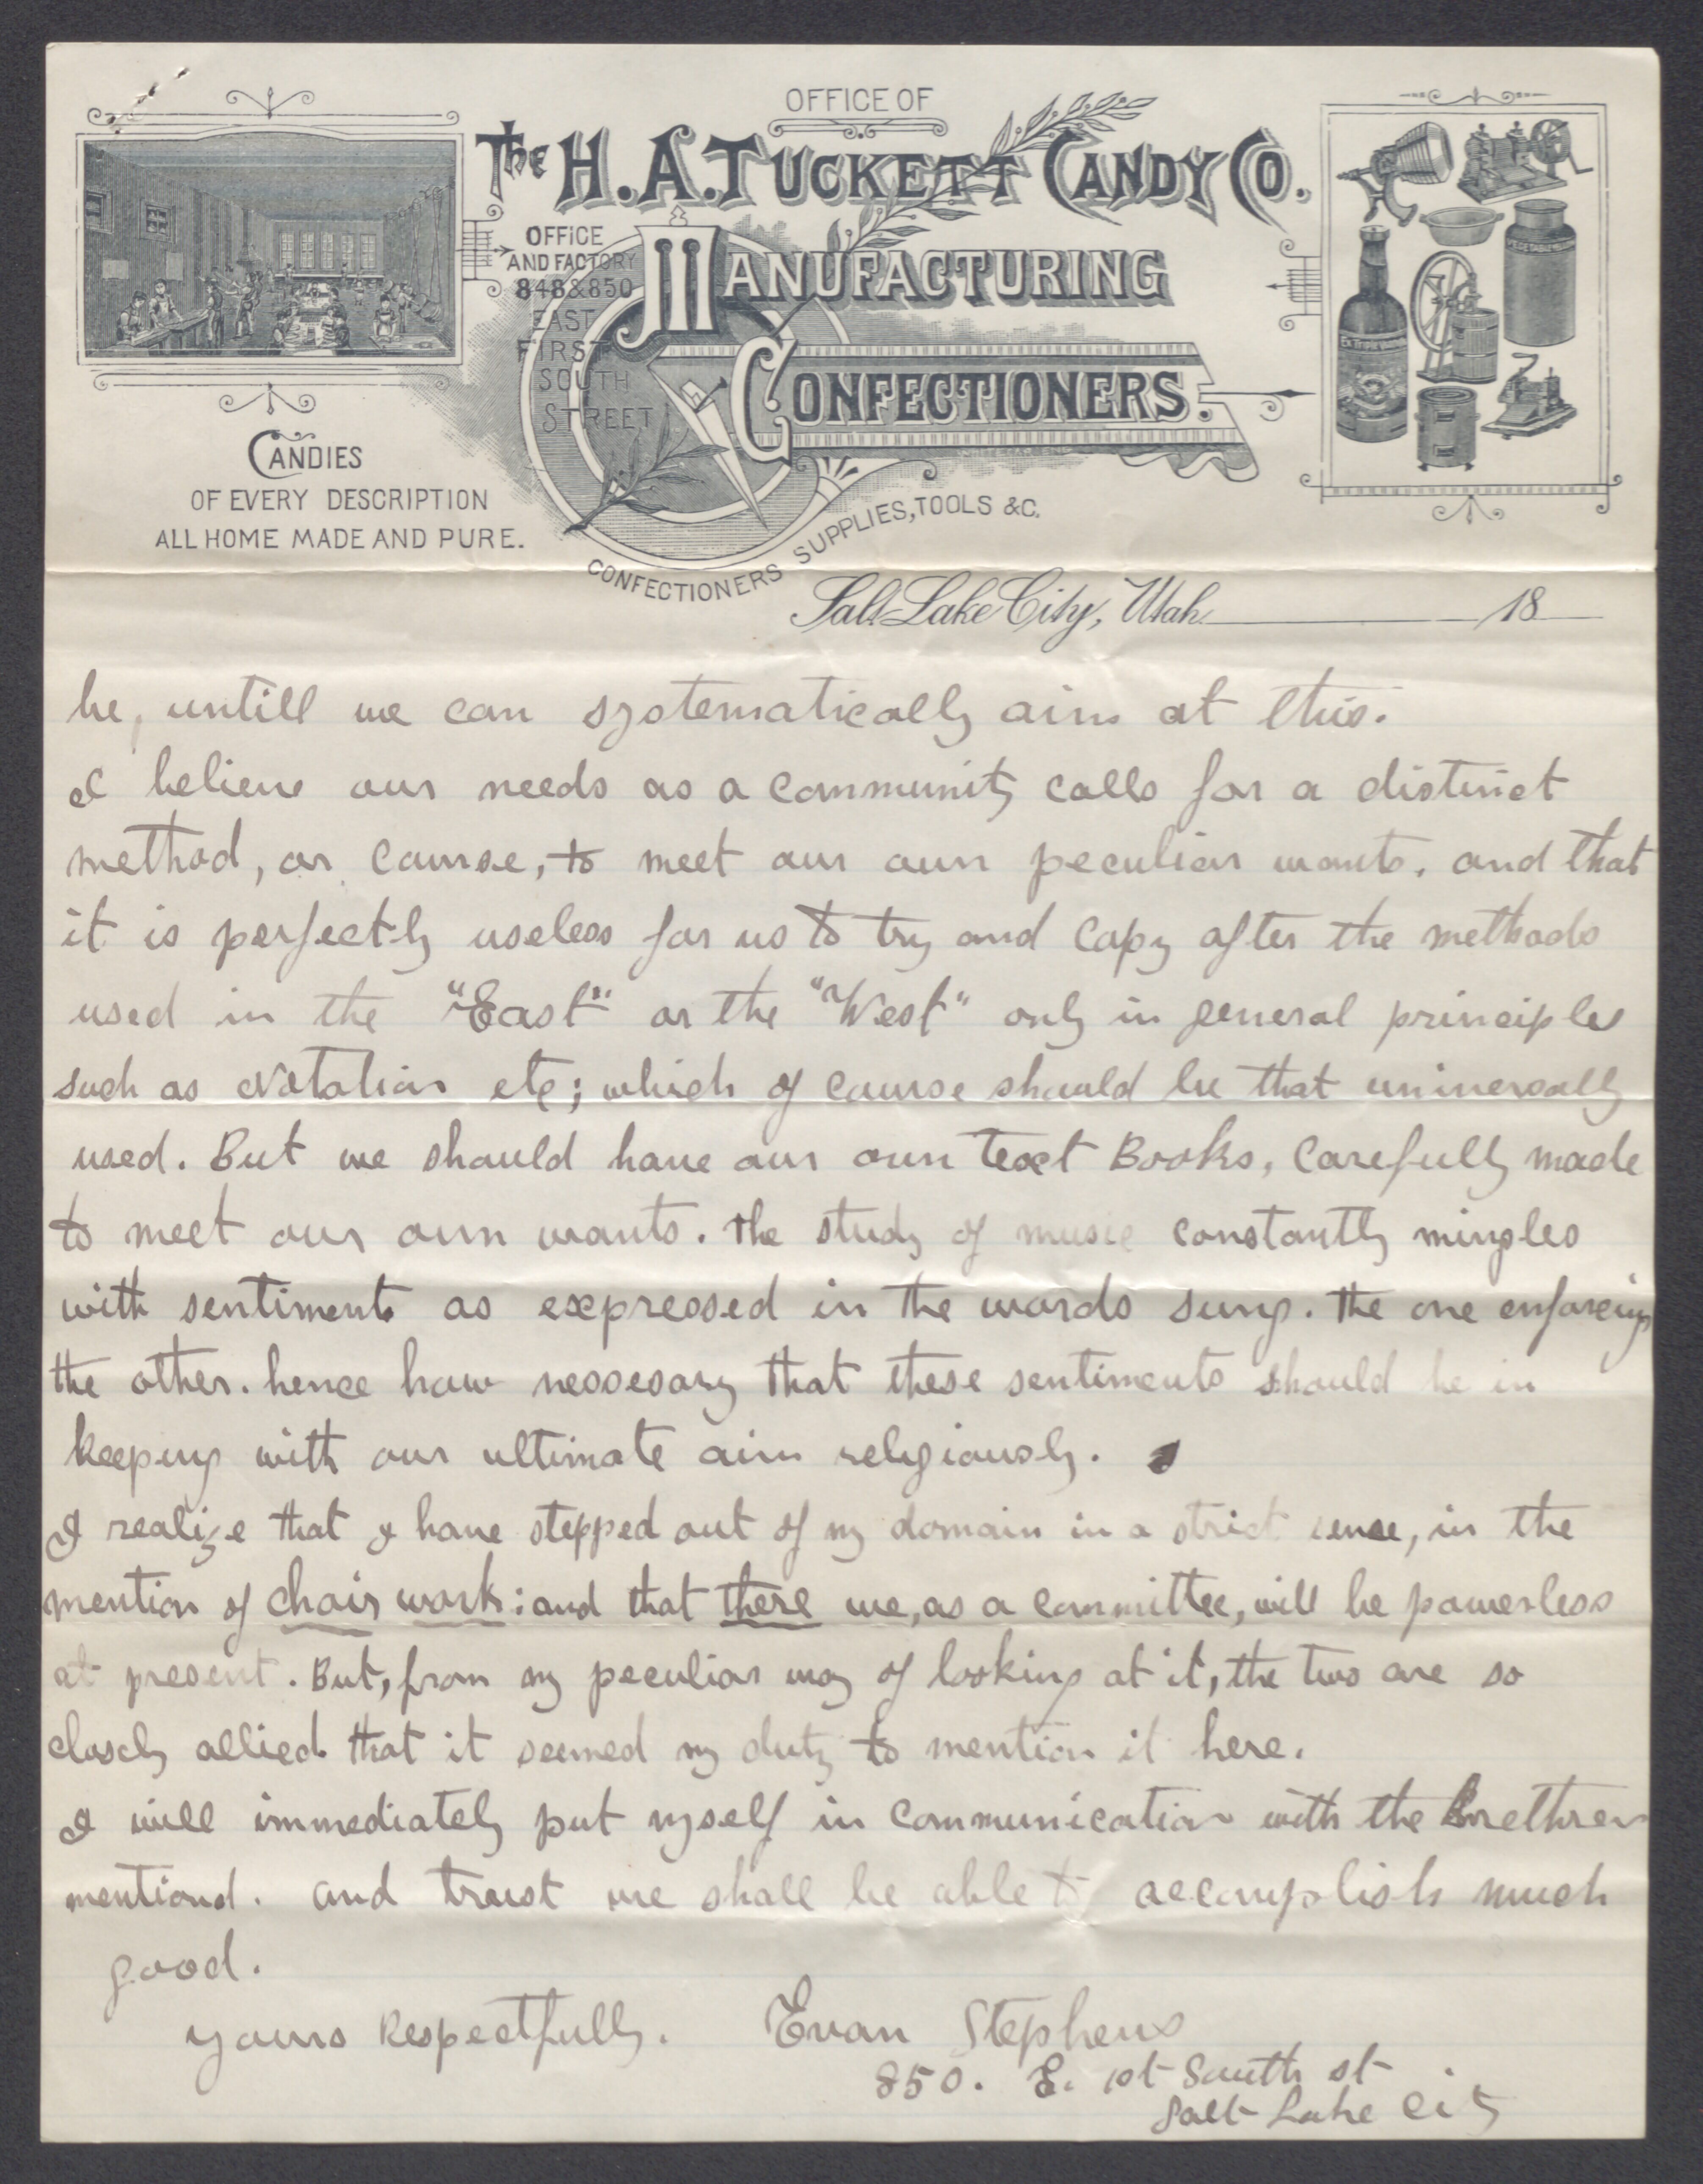 OFFICE OF
The H. A. TUCKETT CANDY CO.
OFFICE
AND FACTORY
848 & 850
EAST
FIRST
SOUTH
STREET
MANUFACTURING
CONFECTIONERS.
CANDIES
OF EVERY DESCRIPTION
ALL HOME MADE AND PURE.
CONFECTIONERS SUPPLIES, TOOLS &C.
Salt Lake City, Utah. 18
be, untill we can systematically aim at this.
I believe our needs as a community calls for a distinct
method, or course, to meet our own peculiar wants. and that
it is perfectly useless for us to try and copy after the methods
used in the "East" or the "West" only in general principles
such as Notation etc; which of course should be that universally
used. But we should have our own Text Books, Carefully made
to meet our own wants. The study of music constantly mingles
with sentiments as expressed in the words sung. The one enforcing
the other. hence how nessesary that these sentiments should be in
keeping with our ultimate aim religiously.
I realize that I have stepped out of my domain in a strict sense, in the
mention of choir work: and that there we, as a committee, will be powerless
at present. But, from my peculiar way of looking at it, the two are so
closely allied that it seemed my duty to mention it here.
I will immediately put myself in communication with the Brethren
mentiond. and trust we shall be able to accomplish much
good.
yours Respectfully. Evan Stephens
850. E. 1st South st
Salt Lake City